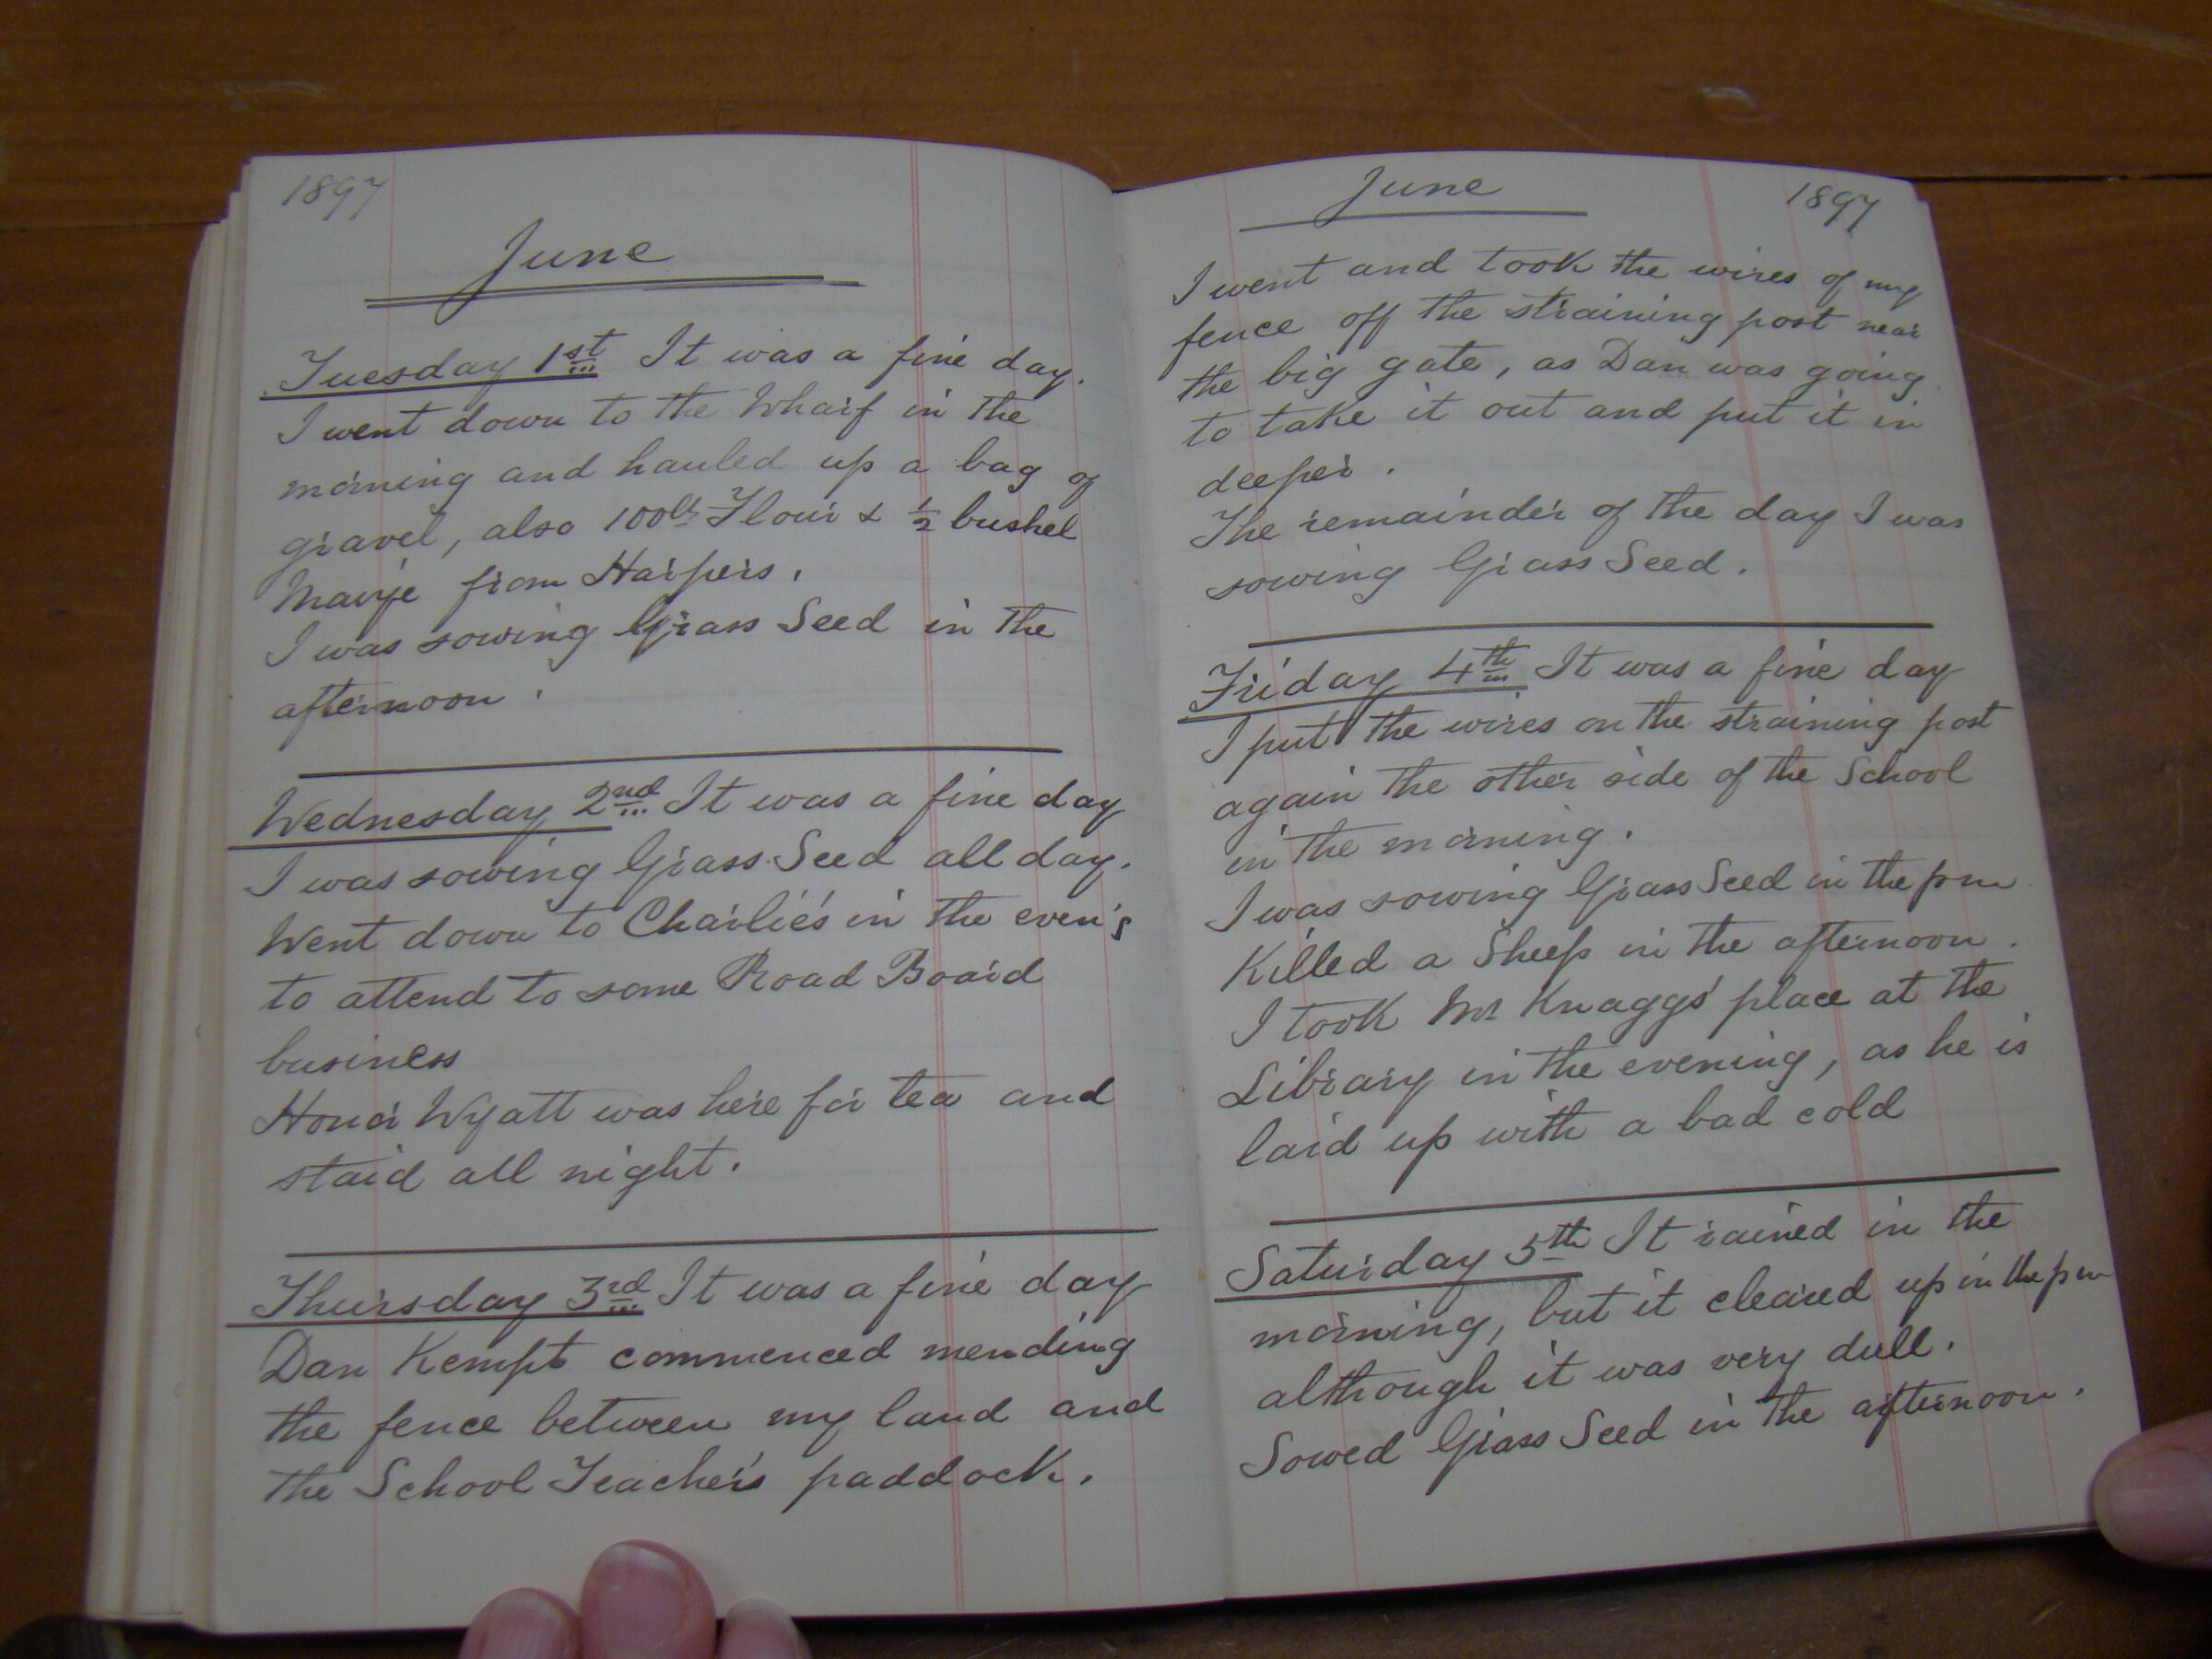 1897
June
Tuesday 1st It was a fine day.
I went down to the Wharf in the
morning and hauled up a bag of
gravel, also 100lbs Flour & ½ bushel
Maize from Harpers.
I was sowing Grass Seed in the
afternoon.
Wednesday 2nd It was a fine day
I was sowing Grass Seed all day.
Went down to Charlie's in the even'g
to attend to some Road Board
business
Honor Wyatt was here for tea and
staid all night.
Thursday 3rd It was a fine day
Dan Kempt commenced mending
the fence between my land and
the School Teacher's paddock.
June 1897
I went and took the wires of my
fence off the straining post near
the big gate, as Dan was going
to take it out and put it in
deeper.
The remainder of the day I was
sowing Grass Seed.
Friday 4th It was a fine day
I put the wires on the straining post
again the other side of the School
in the morning.
I was sowing Grass Seed in the pm
Killed a Sheep in the afternoon.
I took Mr Knaggs' place at the
Library in the evening, as he is
laid up with a bad cold
Saturday 5th It rained in the
morning, but it cleared up in the pm
although it was very dull.
Sowed Grass Seed in the afternoon.